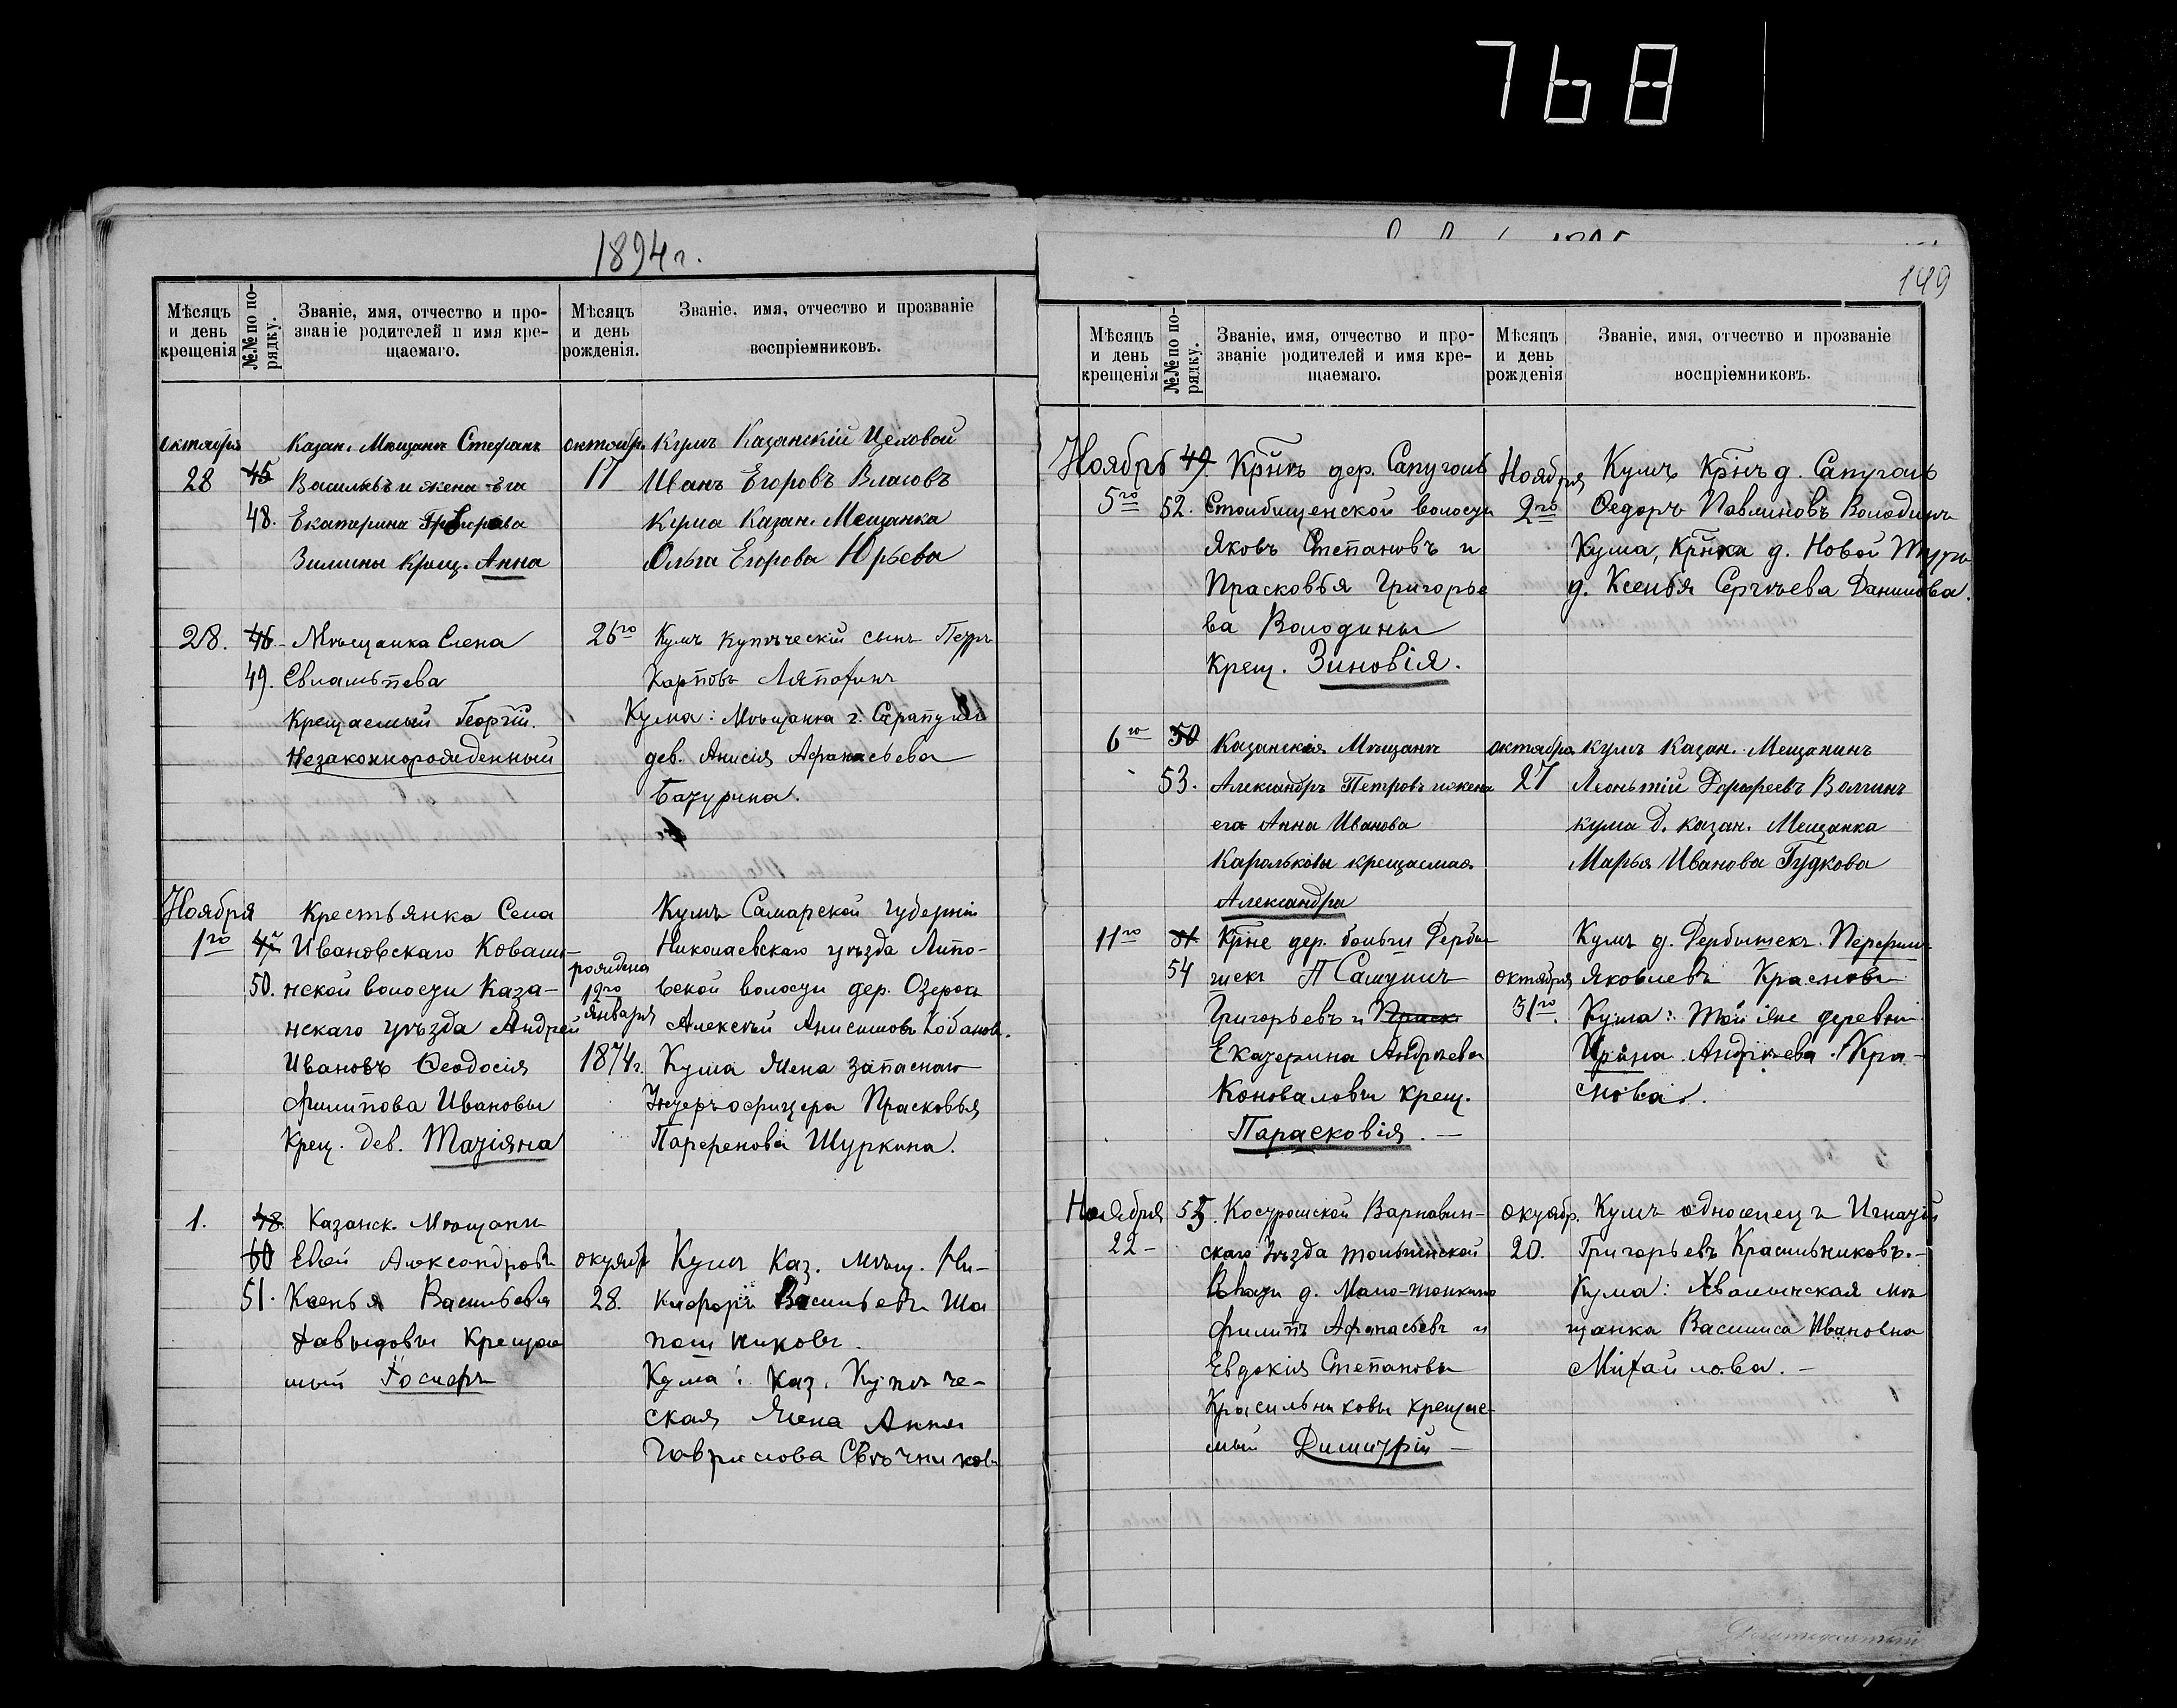 768
1894 г.
149
Мѣсяцъ и день крещенія
№№ по порядку.
Званіе, имя, отчество и про-
званіе родителей и имя кре-
щаемаго.
Мѣсяцъ и день рожденія.
Званіе, имя, отчество и прозваніе
воспріемниковъ.
октября
28
45
48.
Казан. Мѣщанъ Стефанъ
Васильевъ и жена его
Екатерина Григорова
Зимины Крещ. Анна
октябр.
17
Кумъ Казанскій Цеховой
Иванъ Егоровъ Власовъ
Кума Казан. Мещанка
Ольга Егорова Юрьева
28.
46
49.
Мѣщанка Елена
Крещаемый Георгій.
Незаконнорожденный
26го
Кумъ купѣческій сынъ Петръ
Карповъ Ляпофинъ
Кума: Мѣщанка г. Сарапула
дев. Анисія Афанасьева
Батурина.
Ноября
1го
47
50.
Крестьянка Села
Ивановскаго Ковали-
нской волости Каза-
нскаго уѣзда Андрей
Ивановъ Феодосія
Филипова Ивановы
Крещ. дев. Татіяна
рождена
12го
января
1874 г.
Кумъ Самарской губерніи
Николаевскаго уѣзда Липо-
вской волости дер. Озерки
Алексѣй Анисимовъ Кобановъ.
Кума Жена запаснаго
Унтеръ офицера Прасковья
Парфенова Шуркина.
1.
48
50
51.
Казанск. Мѣщани
Евсей Александровъ
Ксенья Васильева
Давыдовы Крещае
мый
октябр
28.
Кумъ Каз. Мѣщ. Ни-
кифоръ Васильевъ Ша
пошниковъ.
Кума: Каз. Купѣче-
ская Жена Анна
Гаврилова Свѣчников
Мѣсяцъ и день крещенія
№№ по порядку.
Званіе, имя, отчество и про-
званіе родителей и имя кре-
щаемаго.
Мѣсяцъ и день рожденія
Званіе, имя, отчество и прозваніе
воспріемниковъ.
Ноября
5го
49.
52.
Крнъ дер. Сапуголь
Столбищенской волости
Яковъ Степановъ и
Прасковья Григорье
ва Володины
Крещ. Зиновія.
Ноября
2го
Кумъ Крнъ д. Сапуголь
Федоръ Павлиновъ Володинъ
Кума, Крнка д. Новой
д. Ксенья Сергѣева Данилова.
6го
50
53.
Казанскія Мѣщане
Александръ Петровъ и жена
его Анна Иванова
Карольковы крещаемая
Александра
октября
27
кумъ Казан. Мещанинъ
Леоньтій Дорофеевъ Волгинъ
кума д. казан. Мещанка
Марья Иванова Гудкова
11го
51
54
Крне дер. больши Дербы-
шекъ
Григорьевъ и Праск
Екатерина Андрѣева
Коноваловы крещ.
Парасковія. —
октября
31го.
Кумъ д. Дербышекъ. Перфилъ
Яковлевъ Красновъ
Кума: той же деревни
Ирина Андрѣева Кра-
снова.
Ноября
22 -
55.
Костромской Варнавин-
скаго Уѣзда
д. Мало-тонкино
Филипъ Афонасьевъ и
Евдокія Степановы
Красильниковы крещае-
мый Димитрій —
октябр.
20.
Кумъ Игнатій
Григорьевъ Красильниковъ. -
Кума: Хвалынская мѣ
щанка Василиса Ивановна
Михайлова. -